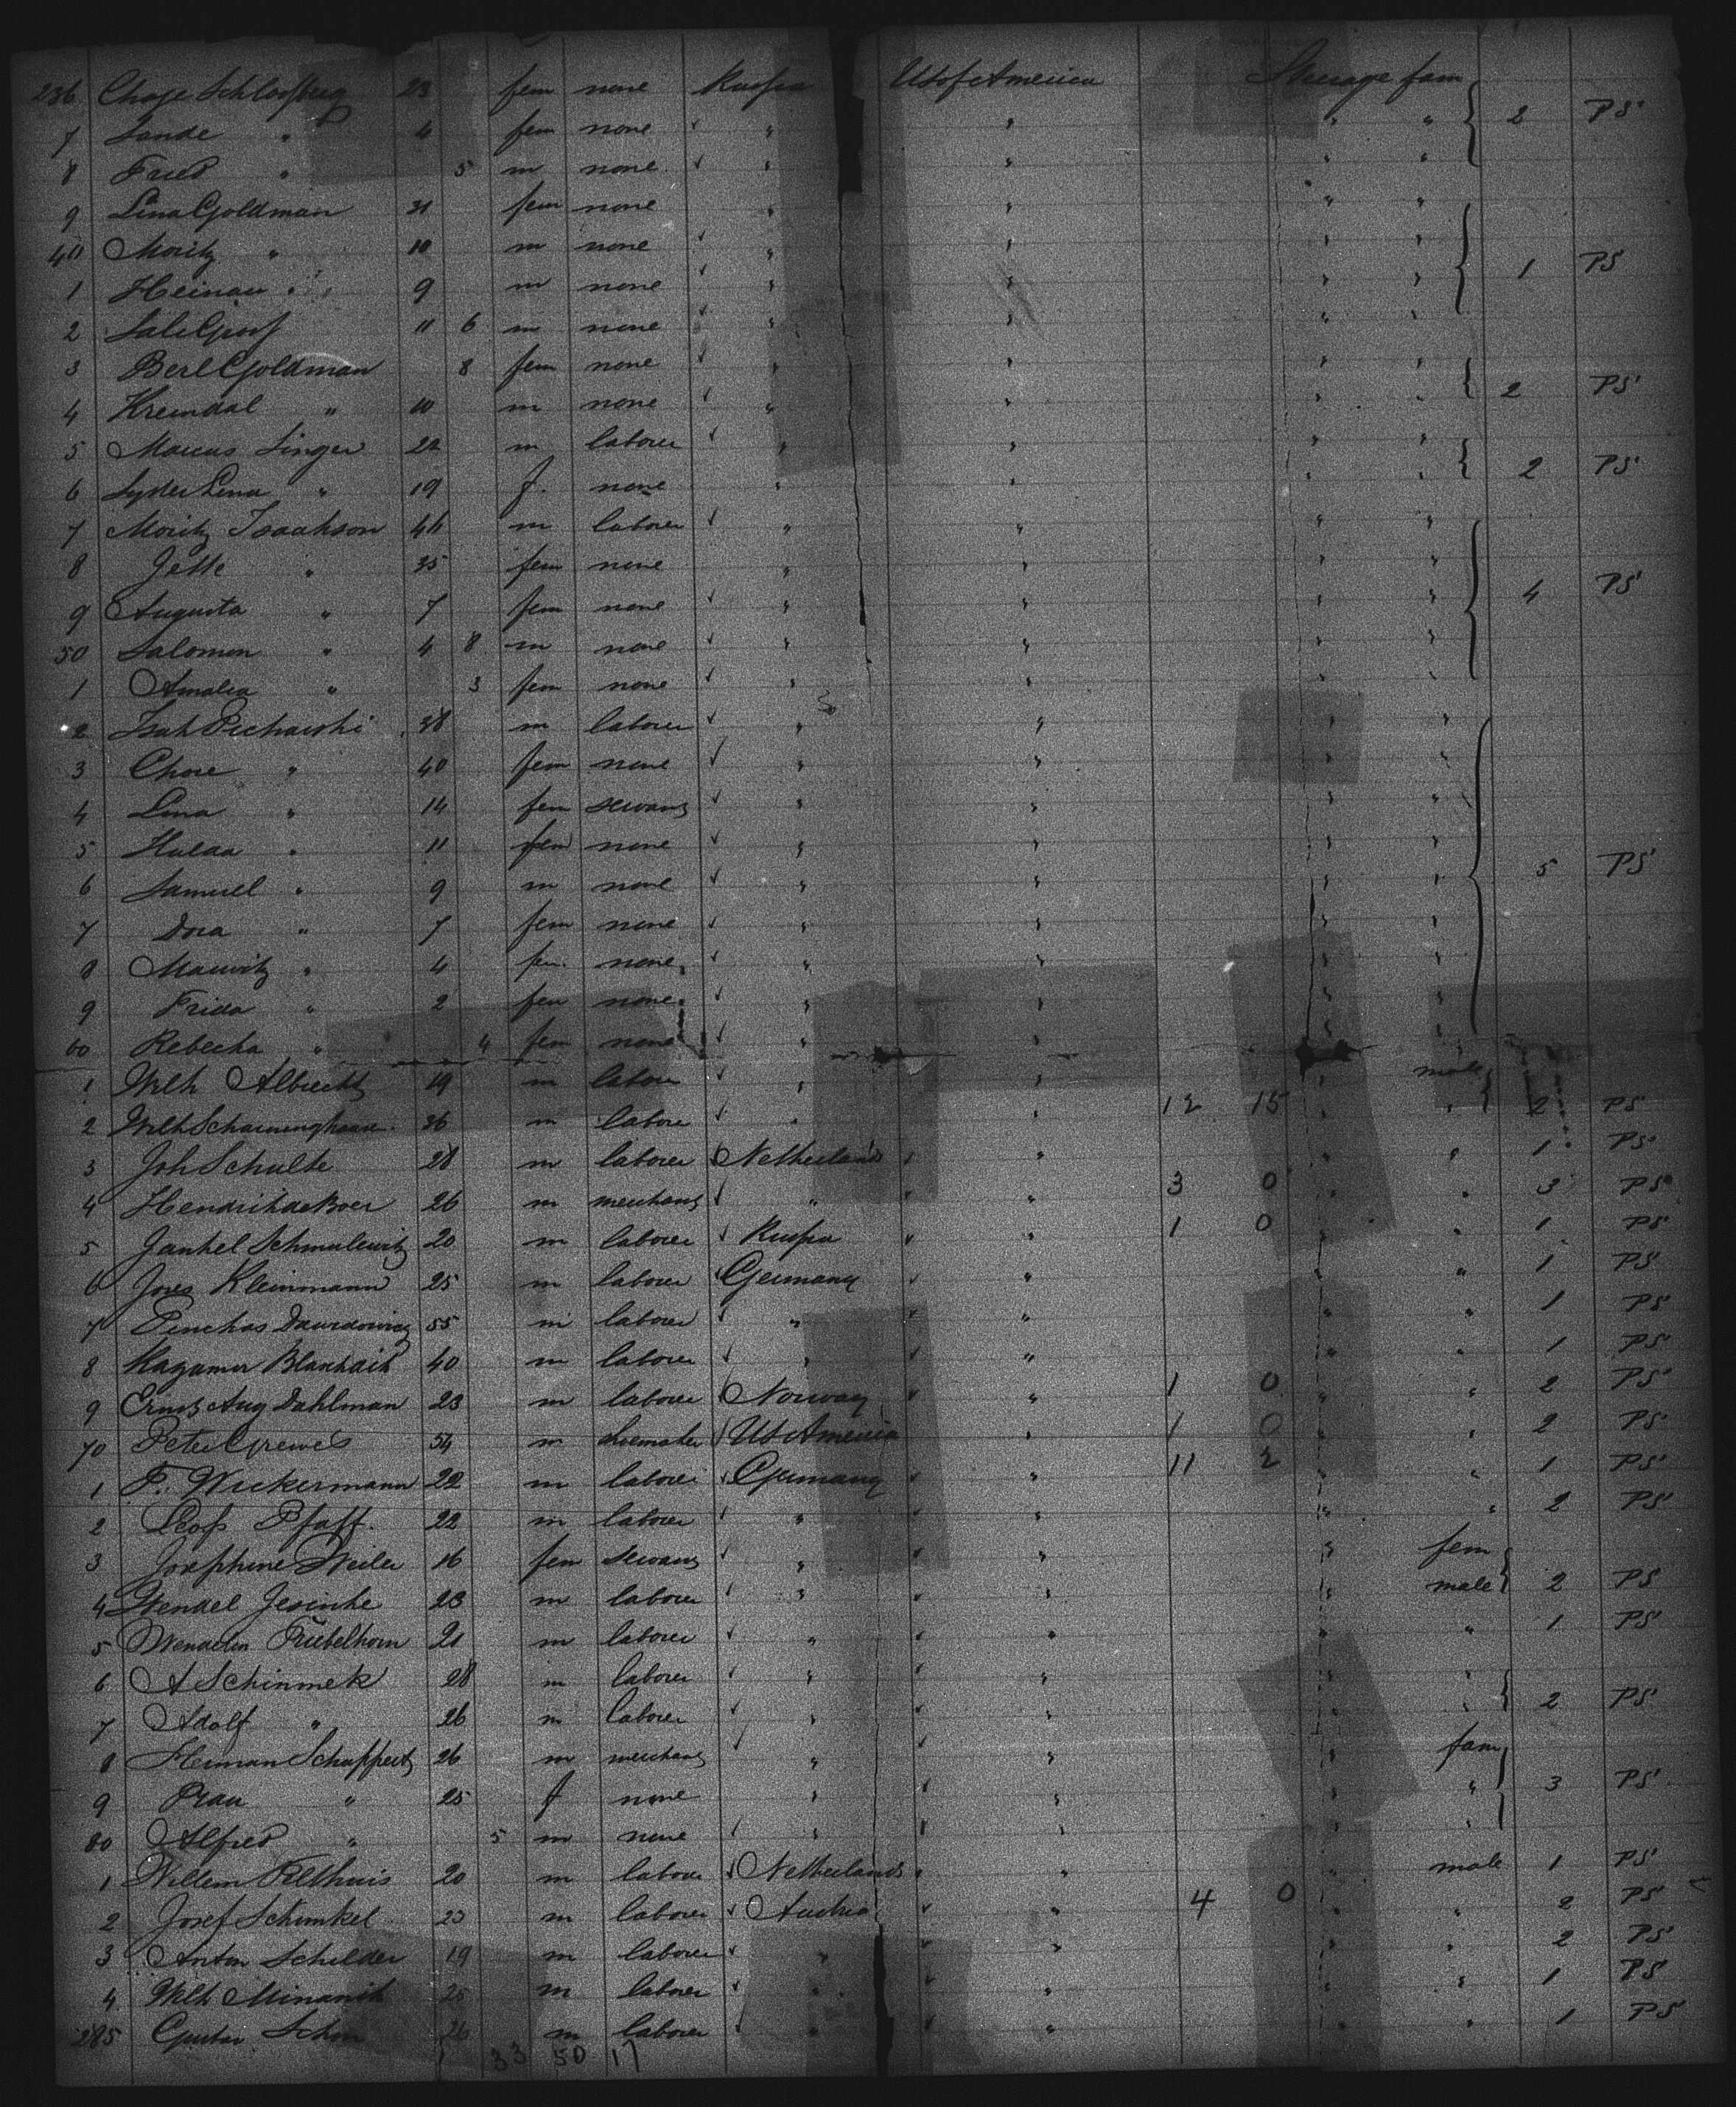 236 Chaje Schlossberg 23 fem none Russia US of America Steerage fam
7 Sande " 4 fem none " " " " 2 PS
8 Fried " 5 m none " " " "
9 Lina Goldman 31 fem none " " " "
40 Moritz " 10 m none " " " "
1 Heiman " 9 m none " " " " 1 PS
2 Sali 11 6 m none " " " "
3 Berl Goldman 8 fem none " " " "
4 Kreindal " 10 m none " " " " 2 PS
5 Marcus Singer 22 m laborer " " " "
6 Lena " 19 f. none " " " " 2 PS
7 Moritz Isaakson 44 m laborer " " " "
8 Jette " 35 fem none " " " "
9 Augusta " 7 fem none " " " " 4 PS
50 Salomon " 4 8 m none " " " "
1 Amalia " 3 fem none " " " "
2 Isak 38 m laborer " " " "
3 Chore " 40 fem none " " " "
4 Lina " 14 fem servant " " " "
5 Hulda " 11 fem none " " " "
6 Samuel " 9 m none " " " " 5 PS
7 Dora " 7 fem none " " " "
8 " 4 fem none " " " "
9 Frida " 2 fem none " " " "
60 Rebecka " 4 fem none " " " "
1 Wilh Albrecht 19 m labor " " " male
2 Wilh 36 m labore " " 12 15 " " 2 PS
3 Joh Schulte 28 m laborer Netherlands " " " 1 PS
4 Hendrik de Boer 26 m merchant " " 3 0 " " 3 PS
5 Jankel Schmulewitz 20 m laborer Russia " 1 0 " " 1 PS
6 Kleinmann 25 m laborer Germany " " " 1 PS
7 Pinchas 55 m laborer " " " " 1 PS
8 40 m laborer " " " " 1 PS
9 Ernst Aug Dahlman 23 m laborer Norway " 1 0 " " 2 PS
70 Peter Grewes 54 m shoemaker US America " 1 0 " " 2 PS
1 F. Wickermann 22 m laborer Germany " 11 2 " " 1 PS
2 Pfaff. 22 m laborer " " " " 2 PS
3 Josephine Weiler 16 fem servant " " " fem
4 Wendel 23 m laborer " " " male 2 PS
5 Wendelin 21 m laborer " " " " 1 PS
6 A Schinmek 28 m laborer " " " "
7 Adolf " 26 m laborer " " " " 2 PS
8 Herman 26 m merchant " " " fam
9 Frau " 25 f none " " " " 3 PS
80 Alfred " 5 m none " " " "
1 Willem Felthuis 20 m laborer Netherlands " " male 1 PS
2 Josef Schimkel 23 m laborer Austria " 4 0 " " 2 PS
3 Anton Schilder 19 m laborer " " " " 2 PS
4 Wilh 25 m laborer " " " " 1 PS
285 Gustav 26 m laborer " " " " 1 PS
33 50 17